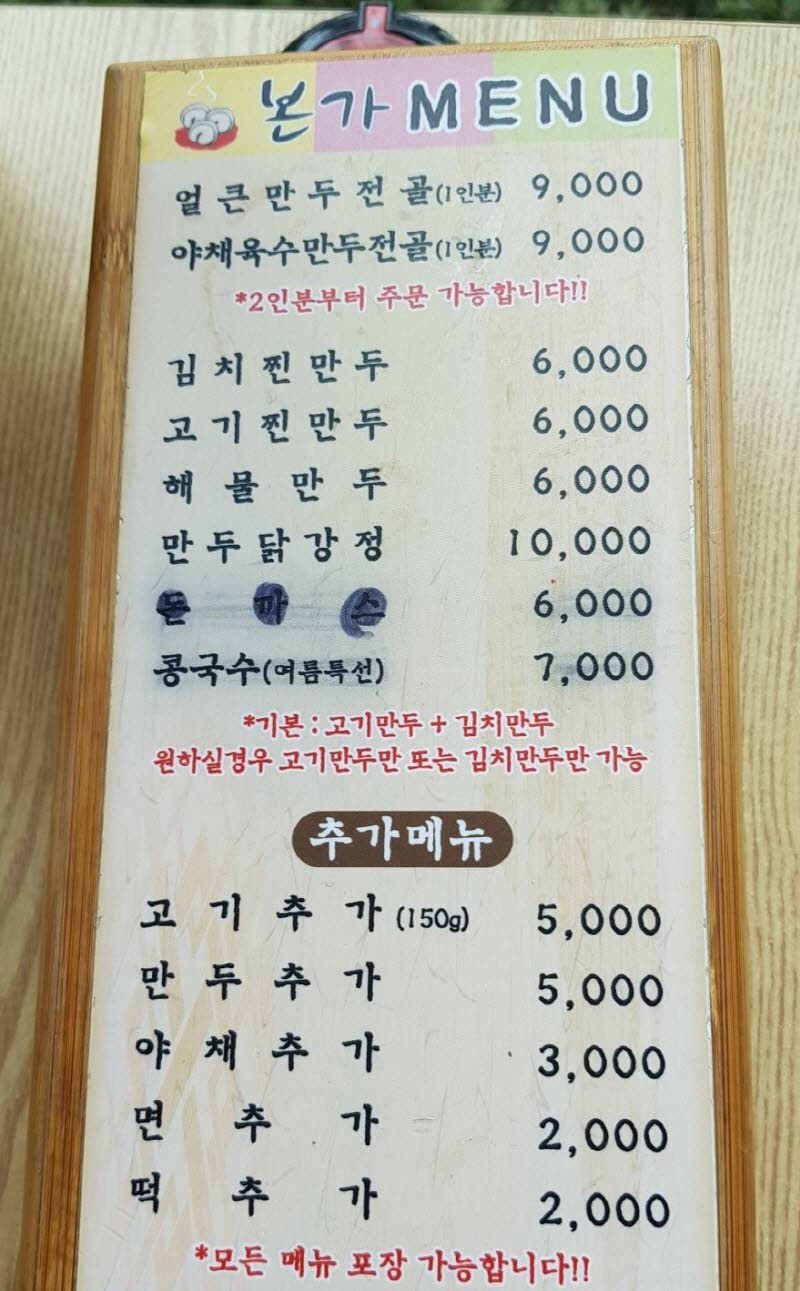 본가 MENU
얼큰만두전골(1인분) 9,000
야채육수만두전골(1인분) 9,000
*2인분부터 주문 가능합니다!!
김치찐만두 6,000
고기찐만두 6,000
해물만두 6,000
만두닭강정 10,000
돈까스 6,000
콩국수(여름특선) 7,000
*기본 : 고기만두 + 김치만두
원하실경우 고기만두만 또는 김치만두만 가능
추가메뉴
고기추가(150g) 5,000
만두추가 5,000
야채추가 3,000
면추가 2,000
떡추가 2,000
*모든 메뉴 포장 가능합니다!!